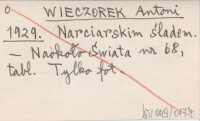 O WIECZOREK Antoni
1929. Narciarskim śladem.
— Naokoło Świata nr 68,
tabl. Tylko fot.